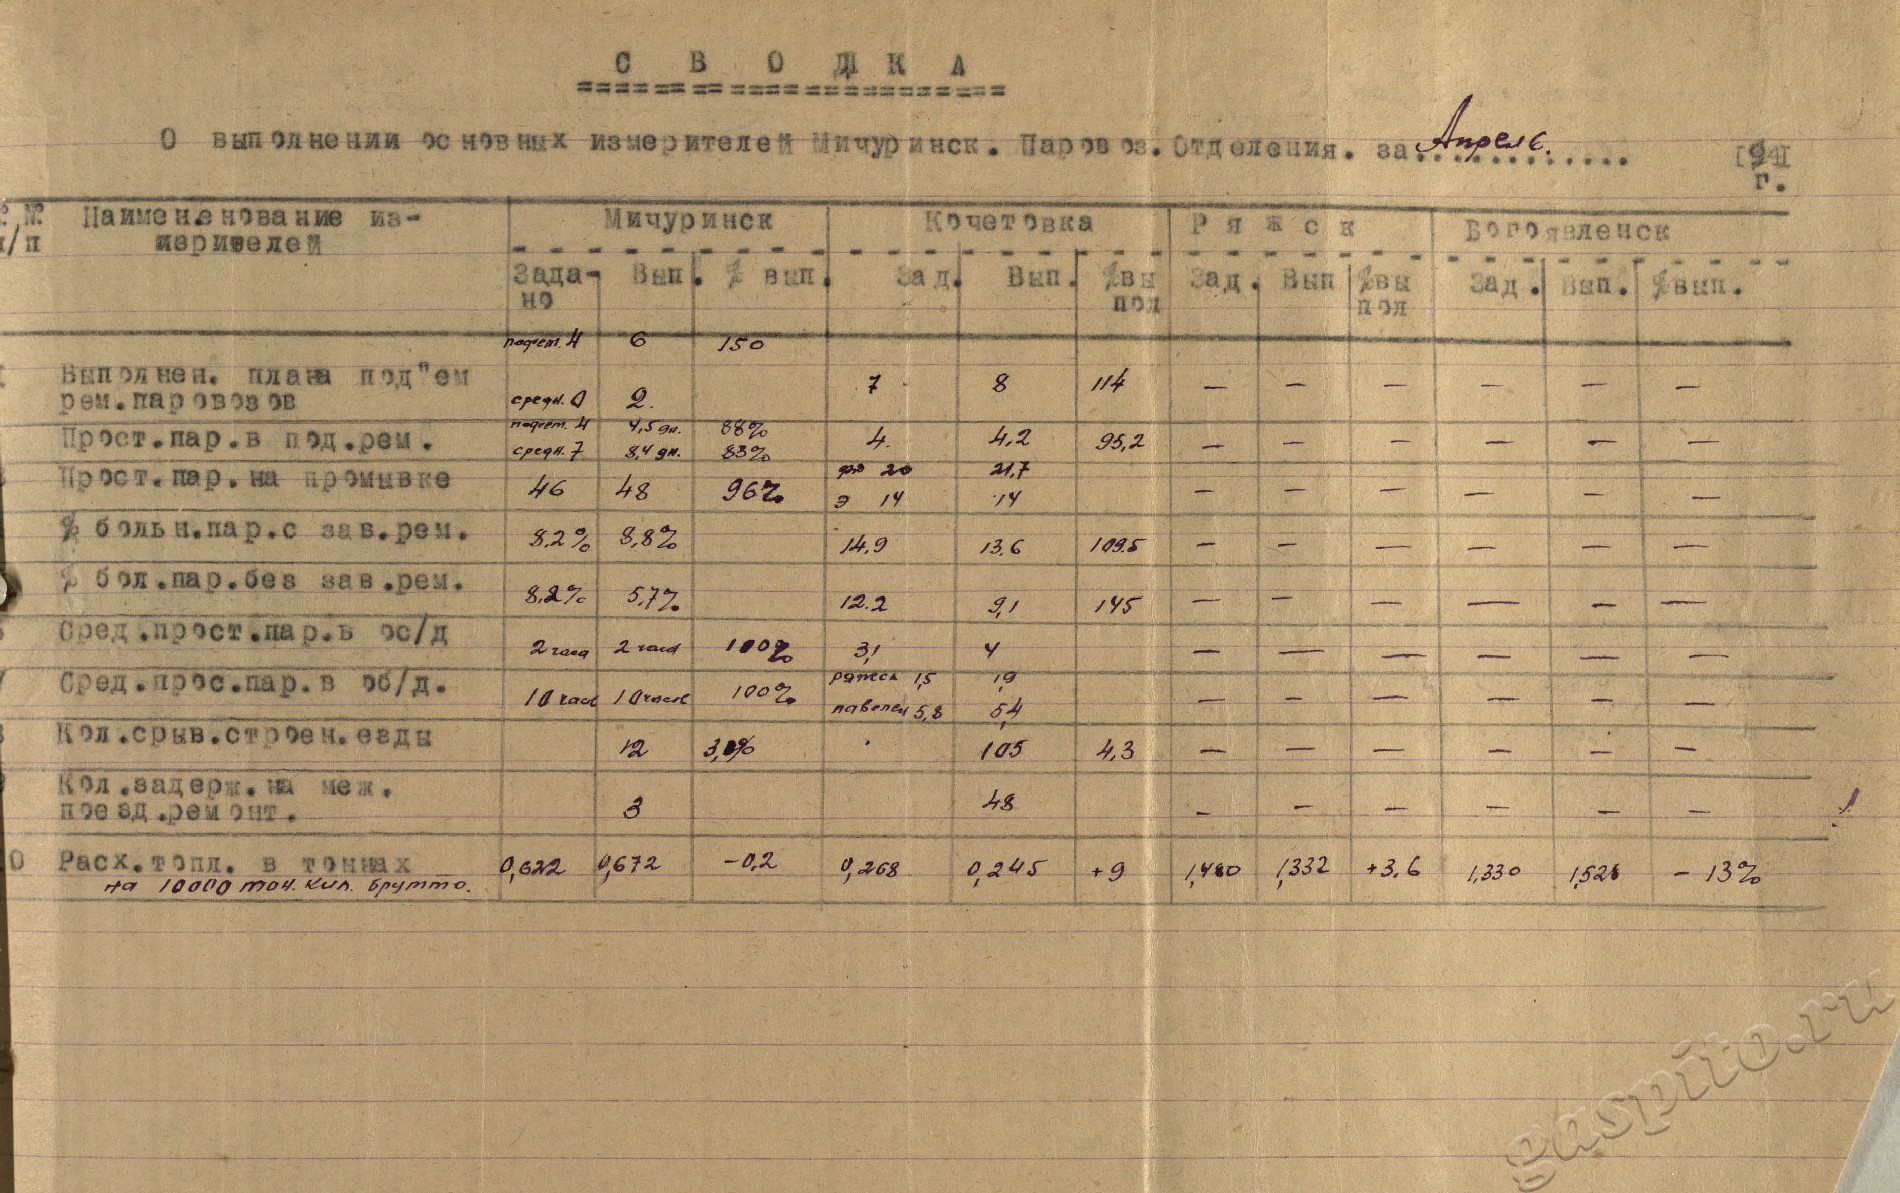 С В О Д К А
О выполнении основных измерителей Мичуринск. Паровоз. Отделения. за Апрель.
г.
№ № Наименование из- Мичуринск Кочетовка Ряжск Богоявленск
п/п мерителей
Зада- Вып. % вып. Зад. Вып. %вы Зад. Вып %вы Зад. Вып. %вып.
но пол пол
подъем. 4 6 150
Выполнен. плана под"ем 7 8 114 — — — — — —
рем.паровозов средн. 0 2.
подъем. 4 4,5 дн. 88%
Прост.пар.в под.рем. 4. 4,2 95,2 — — — — — —
средн. 7 8,4 дн. 83%
Прост.пар.на промывке 46 48 96% 20 21,7 — — — — — —
э 14 14
% больн.пар.с зав.рем. 8,2% 8,8% 14,9 13,6 109.5 — — — — — —
% бол.пар.без зав.рем. 8,2% 5,7% 12.2 9,1 145 — — — — — —
Сред.прост.пар.в ос/д 2 часа 2 часа 100% 3,1 4 — — — — — —
Сред.прос.пар.в об/д. 10 часов 10 часов 100% ряжск 1,5 1,9 — — — — — —
павелец 5,8 5,4
Кол.срыв.строен.езды 12 3,0% 105 4,3 — — — — — —
Кол.задерж.на меж. 3 48 — — — — — —
поезд.ремонт.
0 Расх.топл. в тоннах 0,622 0,672 -0,2 0,268 0,245 +9 1,480 1,332 +3,6 1,330 1,528 - 13%
на 10000 тон. кил. брутто.
gaspito.ru